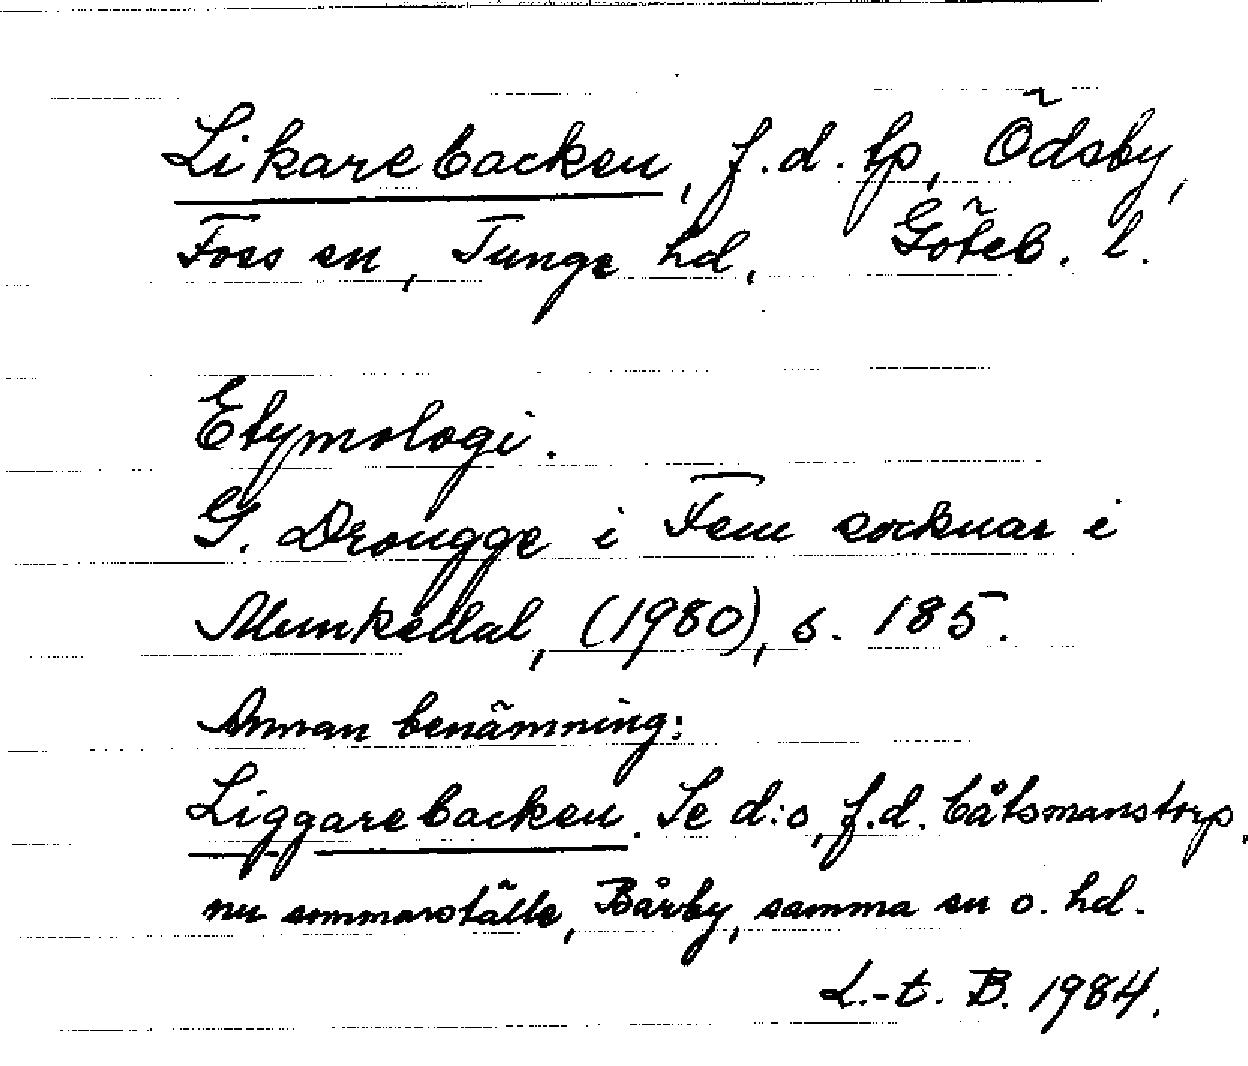 Likarebacken, f.d. tp, Ödsby,
Foss sn, Tunge hd, Göteb. l.
Etymologi.
G. Drougge i Fem socknar i
Munkedal, (1980), s. 185.
Annan benämning:
Liggarebacken. Se d:o, f.d. båtsmanstorp,
nu sommarställe, Bärby, samma sn o. hd.
L.-t. B. 1984.